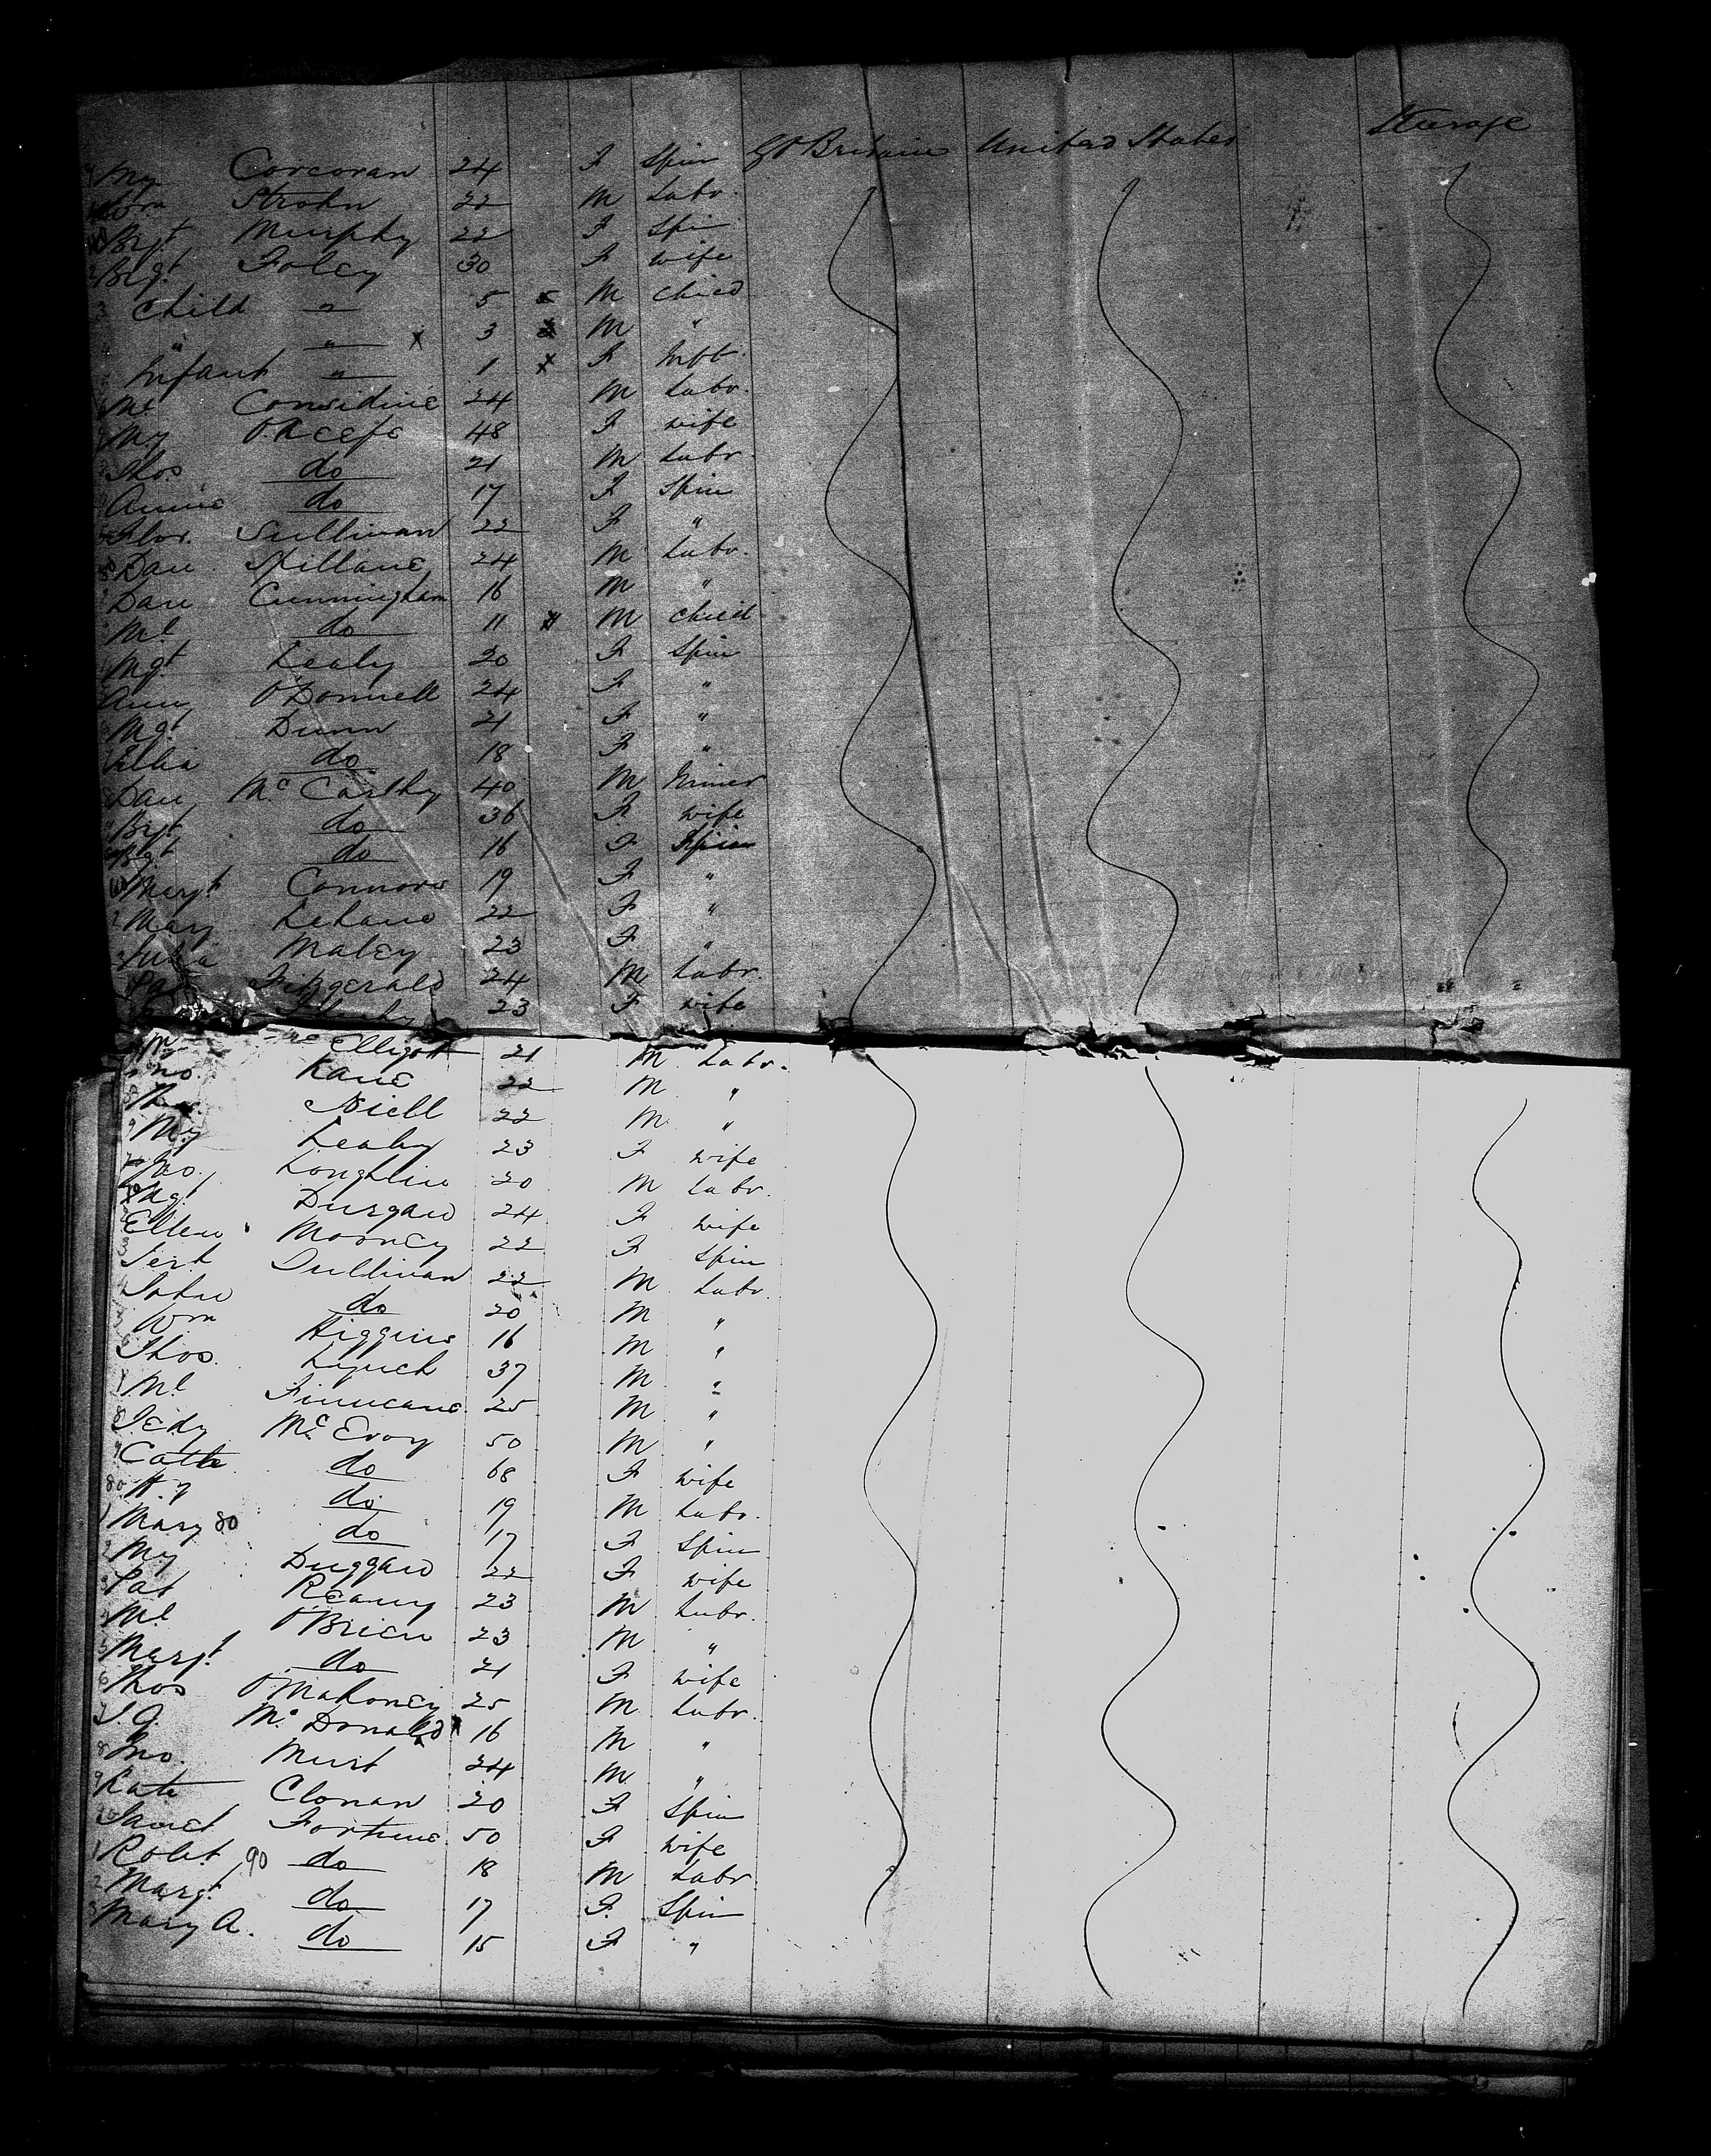 My Corcoran 24 F Spin Gt Britain United States Steerage
Wm Strohn 22 M Labr.
Brgt. Murphy 22 F Spin
Brgt. Foley 30 F wife
3 Child " 5 5 M child
4 " " x 3 3 M "
Infant " 1 x F Inft.
Ml Considine 24 M Labr.
My O'Keefe 48 F wife
Thos do 21 M Labr.
Annie do 17 F Spin
Flor. Sullivan 22 F "
Dan Spillane 24 M Labr.
Dan Cunningham 16 M "
Ml do 11 M child
Mgt Leahy 20 F Spin
Ann O'Donnell 24 F "
Mgt Dunn 21 F "
do 18 F "
Dan Mc Carthy 40 M Miner
Brgt do 36 F wife
do 16 F Spin
Margt Connors 19 F "
2 Mary Lehane 22 F "
Julia Maley 23 F "
Pat Fitzgerald 24 M Labr.
23 F wife
My Mc Elligott 21 M Labr.
Jno. Kane 22 M "
Niell 22 M "
9 My Leahy 23 F wife
Jno. Loughlin 20 M Labr.
Mgt Durgan 24 F wife
Ellen Mooney 22 F Spin
Jerh Sullivan 22 M Labr.
John do 20 M "
Wm Higgins 16 M "
Thos. Lynch 37 M "
Ml Finucane 25 M "
8 Jedy Mc Evoy 50 M "
9 Cathe do 68 F wife
80 do 19 M Labr.
1 Mary 80 do 17 F Spin
2 My Duggan 22 F wife
3 Pat Reany 23 M Labr.
4 Ml O'Brien 23 M "
5 Margt. do 21 F wife
6 Thos O'Mahoney 25 M Labr.
7 J.J. Mc Donald 16 M "
8 Jno. Murt 24 M "
9 Kate Clonan 20 F Spin
Janet Fortune 50 F wife
1 Robt 90 do 18 M Labr
2 Margt. do 17 F. Spin
3 Mary A. do 15 F "